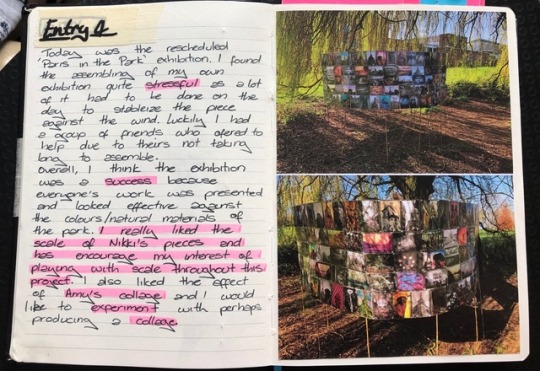 Entry 4
Today was the rescheduled
'Paris in the Park' exhibition. I found
the assembling of my own
exhibition quite stressful as a lot
of it had to be done on the
day to stableize the piece
against the wind. Luckily I had
a group of friends who offered to
help due to theirs not taking
long to assemble.
Overall, I think the exhibition
was a success because
everyone's work was presented
and looked effective against
the colours/natural materials of
the park. I really liked the
scale of Nikki's pieces and
has encourage my interest of
playing with scale throughout this
project. I also liked the effect
of Amy's collage and I would
like to experiment with perhaps
producing a collage.